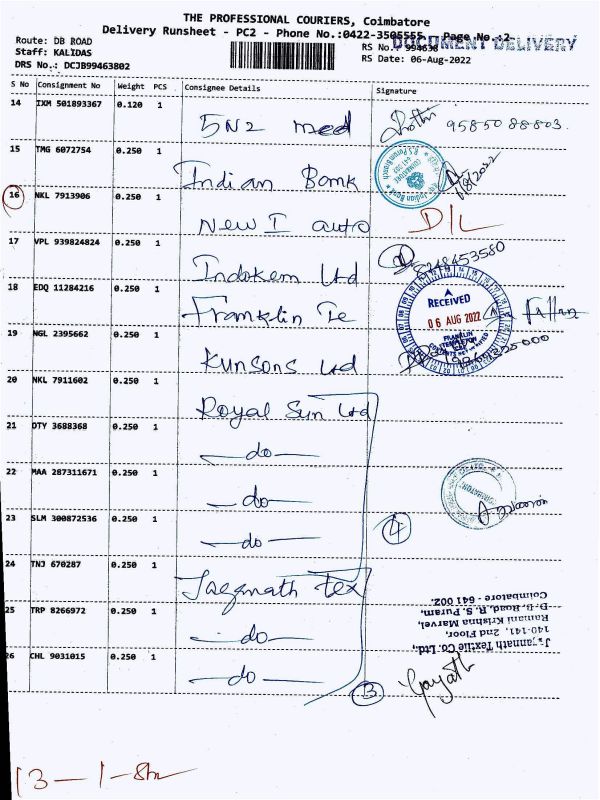 THE PROFESSIONAL COURIERS, Coimbatore
Delivery Runsheet - PC2 - Phone No.:0422-3505555 Page No.:2
DOCUMENT DELIVERY
Route: DB ROAD
RS No.: 994638
Staff: KALIDAS
RS Date: 06-Aug-2022
DRS No.: DCJB99463802
S No Consignment No Weight PCS Consignee Details Signature
14 IXM 501893367 0.120 1 5N2 med 9585088803.
15 TMG 6072754 0.250 1 Indian Bank
16 NKL 7913906 0.250 1 New I auto D/L
17 VPL 939824824 0.250 1 Indokem Ltd 8248453580
18 EDQ 11284216 0.250 1 Franklin Te
RECEIVED
06 AUG 2022
FRANKLIN
TEMPLETON
19 NGL 2395662 0.250 1 Kunsons Ltd
20 NKL 7911602 0.250 1 Royal Sun Ltd
21 DTY 3688368 0.250 1 —do—
22 MAA 287311671 0.250 1 —do—
23 SLM 300872536 0.250 1 —do— 4
24 TNJ 670287 0.250 1 Jagnath Tex
25 TRP 8266972 0.250 1 —do—
26 CHL 9031015 0.250 1 —do— 3
Jagannath Textile Co. Ltd.,
140-141, 2nd Floor,
Ramani Krishna Marvel,
D.B. Road, R. S. Puram,
Coimbatore - 641 002.
Gayath
13 - 1 -